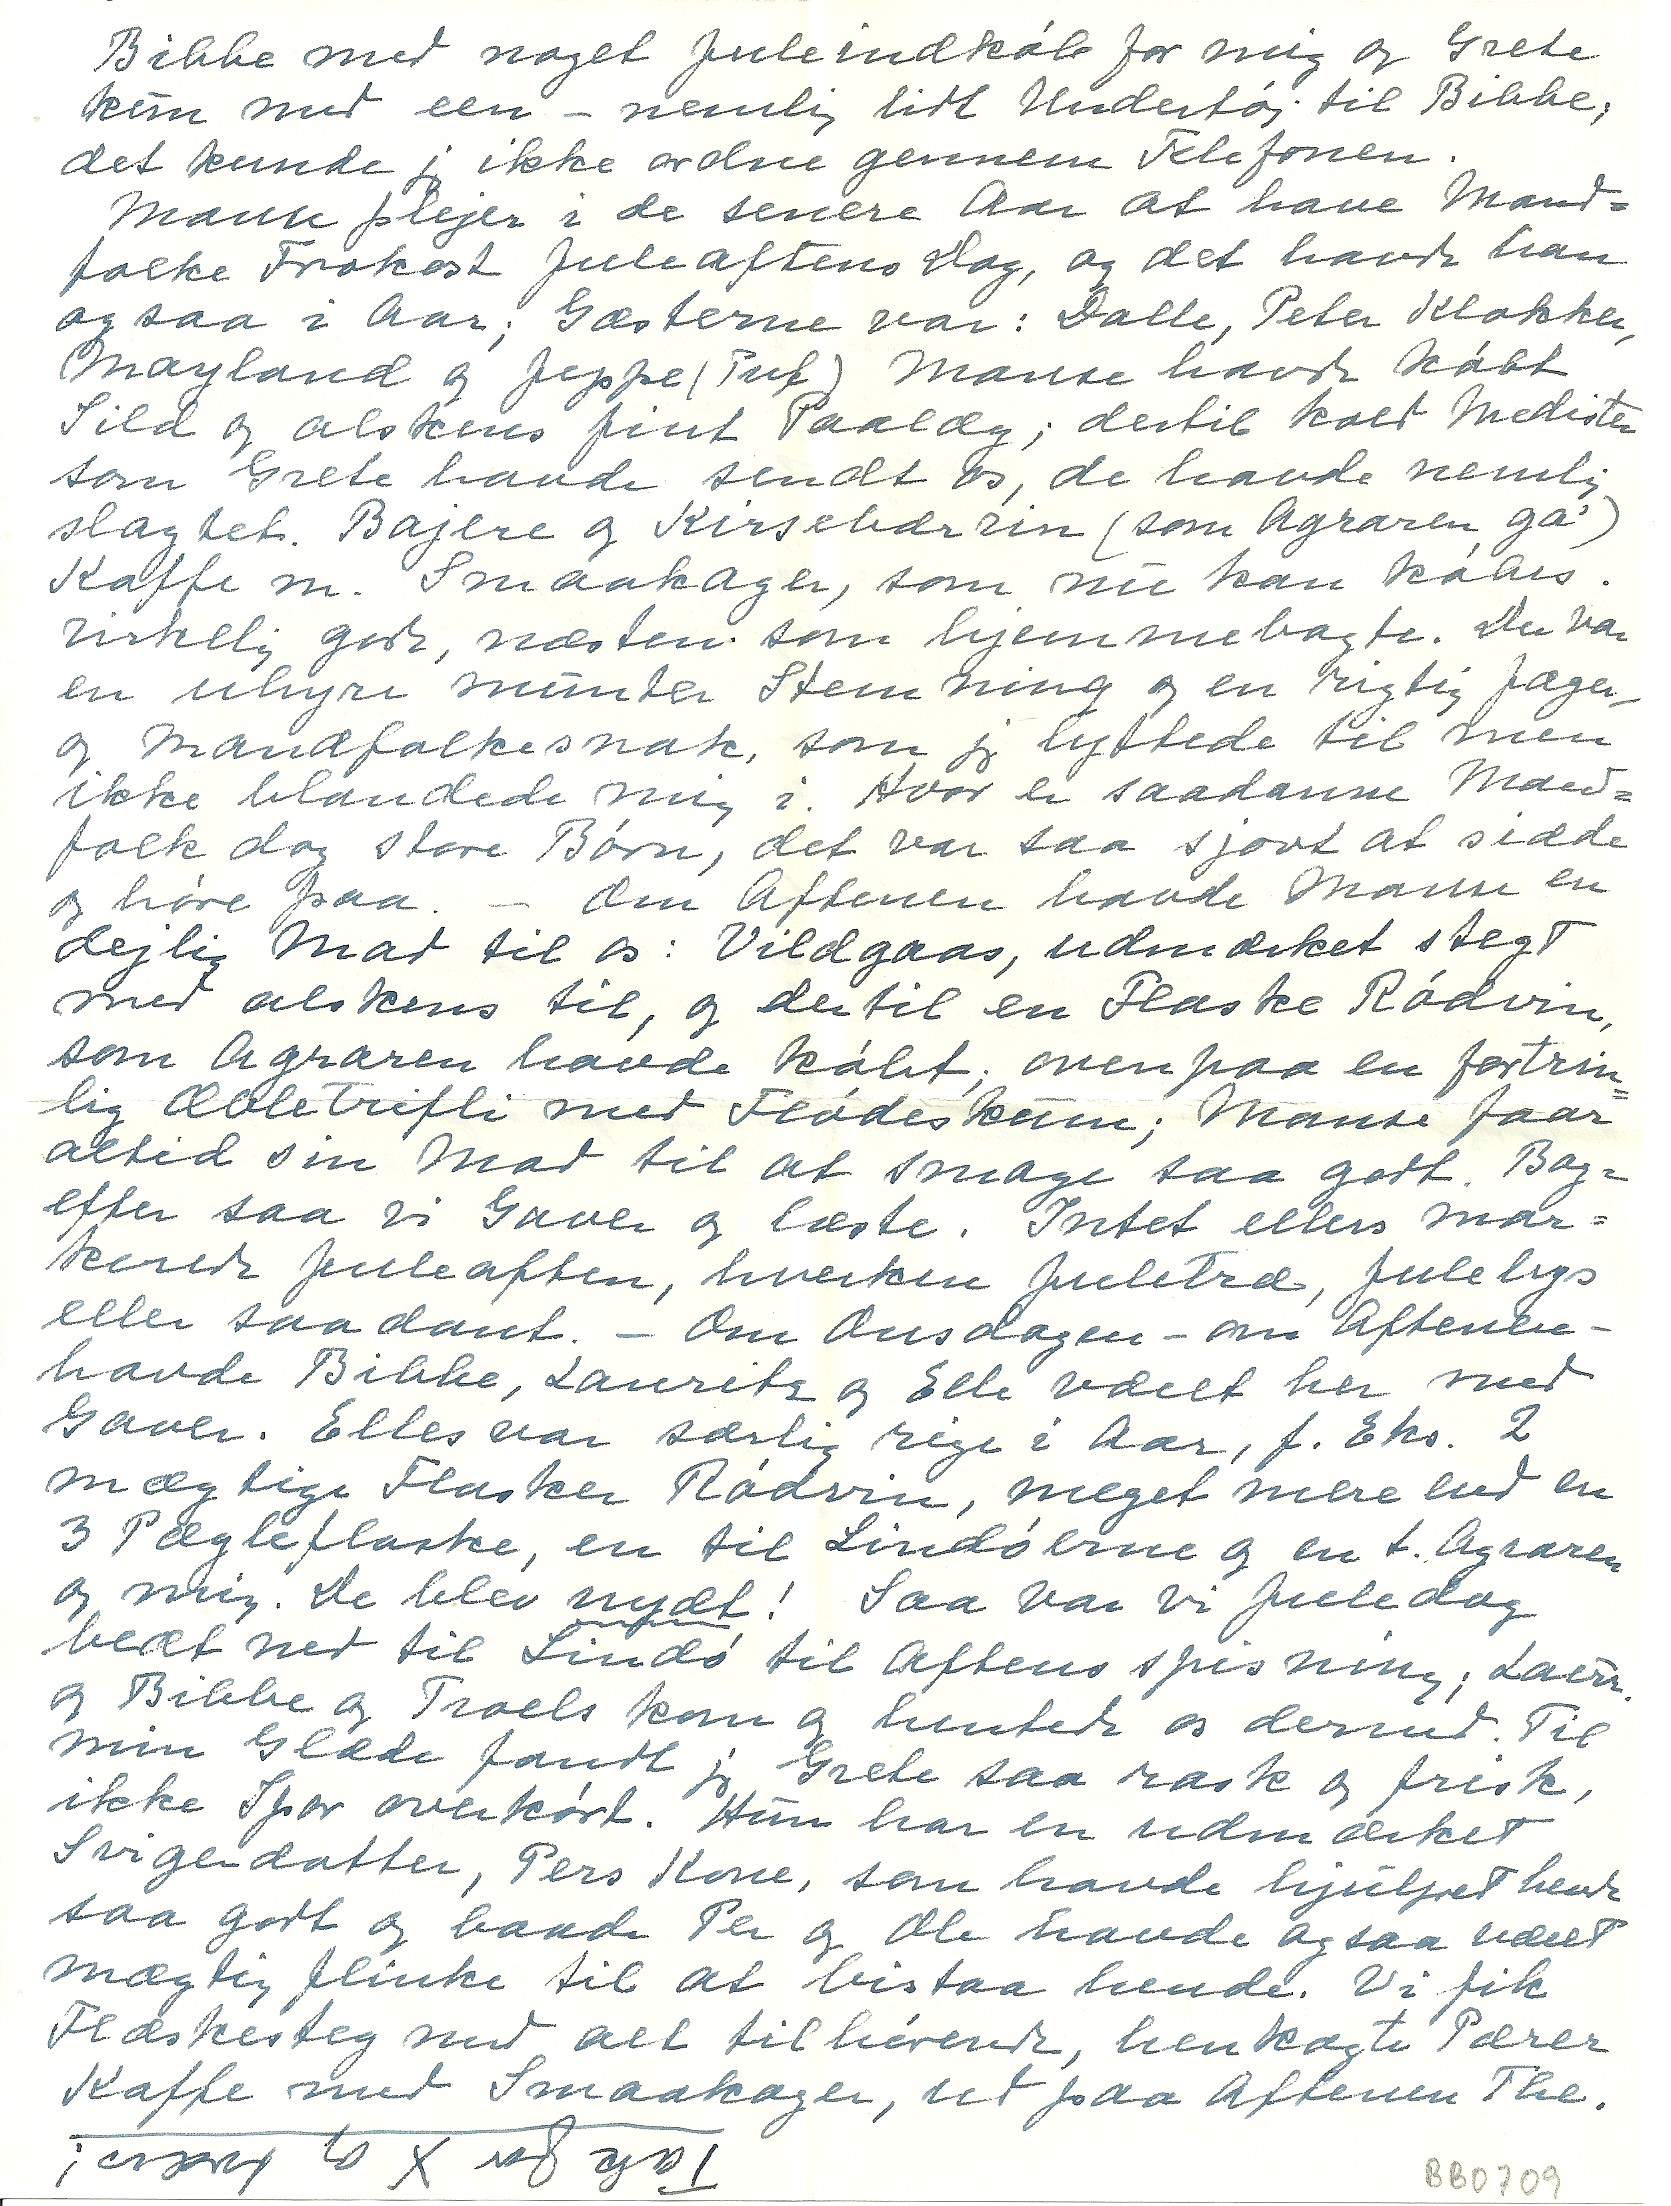 Bibbe med noget Juleindkøb for mig og Grete
kun med een - nemlig lidt Undertøj til Bibbe;
det kunde jg ikke ordne gennem Telefonen.
Manse plejer i de senere Aar at have Mand=
folke Frokost Juleaftens Dag, og det havde han
ogsaa i Aar; Gæsterne var: Dalle, Peter Klokker,
Mayland og Jeppe (Tut) Manse havde købt
Sild og alskens fint Paalæg; dertil kold Medister
som Grete havde sendt os, de havde nemlig
slagtet. Bajere og Kirsebærvin (som Agraren ga')
Kaffe m. Smaakager, som nu kan købes.
virkelig gode, næsten som hjemmebagte. Der var
en uhyre munter Stemning og en rigtig Jæger-
og Mandfolkesnak, som jg lyttede til men
ikke blandede mig i. Hvor er saadanne Mand=
folk dog store Børn, det var saa sjovt at sidde
og høre paa. - Om Aftenen havde Manse en
dejlig Mad til os: Vildgaas, udmærket stegt
med alskens til, og dertil en Flaske Rødvin,
som Agraren havde købt; ovenpaa en fortrin=
lig Æbletrifli med Flødeskum; Manse faar
altid sin Mad til at smage saa godt. Bag=
efter saa vi Gaver og læste. Intet ellers mar=
kerede Juleaften, hverken Juletræ, Julelys
eller saadant. - Om Onsdagen - om Aftenen -
havde Bibbe, Lauritz og Elle været her med
Gaver. Elles var særlig rige i Aar, f. Eks. 2
mægtige Flasker Rødvin, meget mere end en
3 Pægleflaske, en til Lindøerne og en t. Agraren
og mig. De blev nydt! Saa var vi Juledag
bedt ned til Lindø til Aftens spisning; Laur.
og Bibbe og Troels kom og hentede os derned. Til
min Glæde fandt jg Grete saa rask og frisk,
ikke Spor overkørt. Hun har en udmærket
Svigerdatter, Pers Kone, som havde hjulpet hende
saa godt og baade Per og Ole havde ogsaa været
mægtig flinke til at bistaa hende. Vi fik
Flæskesteg med alt tilhørende, henkogte Pærer
Kaffe med Smaakager, ud paa Aftenen The.
Tak for X og
BB0709